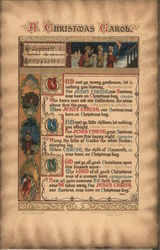 A CHRISTMAS CAROL.
GOD rest ye, merry gentlemen, let nothing you dismay,
For JESUS CHRIST, our Saviour, was born on Christmas-day.
The dawn rose red o'er Bethlehem, the stars shone thro' the gray,
When JESUS CHRIST, our Saviour, was born on Christmas-day.
GOD rest ye, little children, let nothing you affright,
For JESUS CHRIST, your Saviour, was born this happy night;
Along the hills of Galilee the white flocks sleeping lay,
When CHRIST, the child of Nazareth, was born on Christmas-day.
GOD rest ye, all good Christians, upon this blessed morn
The LORD of all good Christians was of a woman born,
Now all your sorrows He doth heal, your
sins He takes away, For JESUS CHRIST, our
Saviour, was born on Christmas-day.